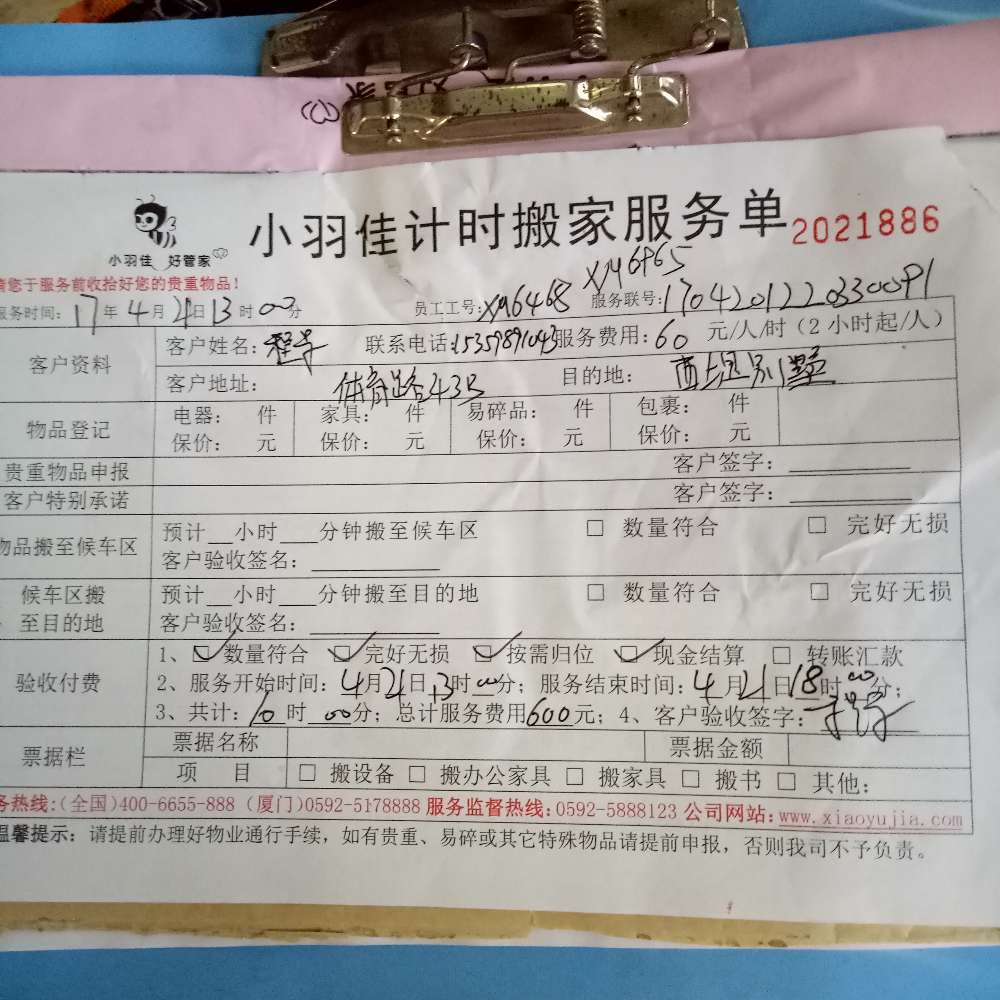 小羽佳 好管家
小羽佳计时搬家服务单 2021886
请您于服务前收拾好您的贵重物品!
XM6965
服务时间: 17年4月21日13时00分 员工工号: XM6468 服务联号: 1704201220330091
客户资料 客户姓名: 联系电话: 15359891043 服务费用: 60 元/人/时 (2小时起/人)
客户地址: 体育路43号 目的地: 别墅
物品登记 电器: 件 家具: 件 易碎品: 件 包裹: 件
保价: 元 保价: 元 保价: 元 保价: 元
贵重物品申报 客户签字:
客户特别承诺 客户签字:
物品搬至候车区 预计__小时___分钟搬至候车区 □ 数量符合 □ 完好无损
客户验收签名:
候车区搬至目的地 预计__小时___分钟搬至目的地 □ 数量符合 □ 完好无损
客户验收签名:
验收付费 1、☑数量符合 ☑完好无损 ☑按需归位 ☑现金结算 □ 转账汇款
2、服务开始时间: 4月21日13时00分; 服务结束时间: 4月21日18时00分;
3、共计: 10时00分; 总计服务费用600元; 4、客户验收签字:
票据栏 票据名称 票据金额
项 目 □ 搬设备 □ 搬办公家具 □ 搬家具 □ 搬书 □ 其他:
务热线:(全国)400-6655-888 (厦门)0592-5178888 服务监督热线:0592-5888123 公司网站:www.xiaoyujia.com
温馨提示: 请提前办理好物业通行手续，如有贵重、易碎或其它特殊物品请提前申报，否则我司不予负责。